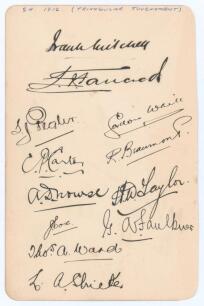 SA 1912 (TRIANGULAR TOURNAMENT)
Frank Mitchell
S J Pegler
Gordon White
C P Carter
R. Beaumont
A D Nourse
H W Taylor
G. A Faulkner
Thos A. Ward
L A Stricker